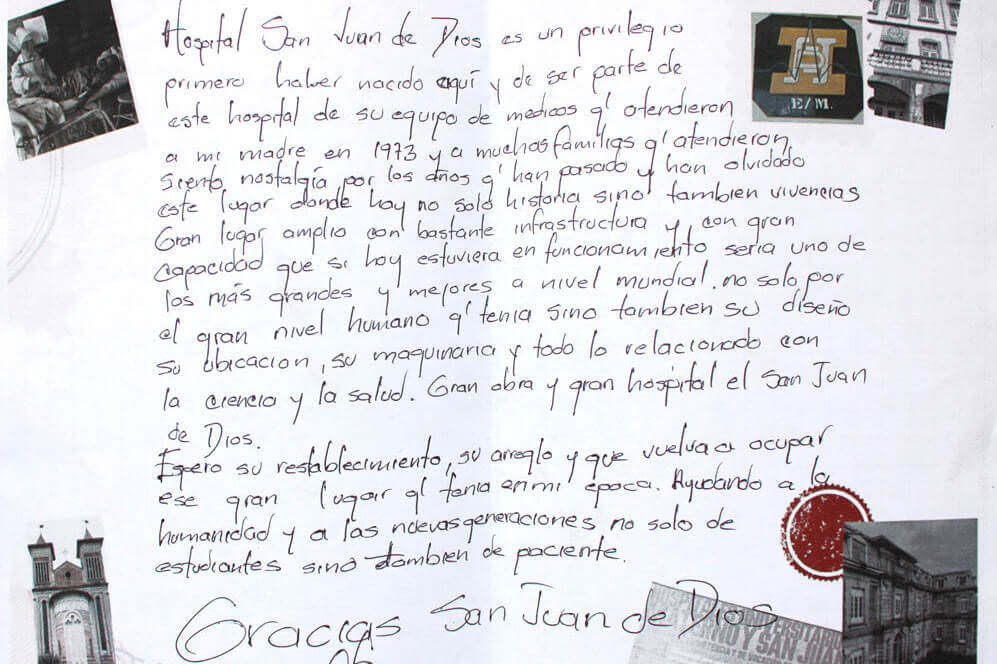 Hospital San Juan de Dios es un privilegio
primero haber nacido aquí y de ser parte de
este hospital de su equipo de medicos q' atendieron
a mi madre en 1973 y a muchas familias q' atendieron
Siento nostalgía por los años q' han pasado y han olvidado
este lugar donde hay no solo historia sino tambien vivencias
Gran lugar amplio con bastante infrastructura y con gran
capacidad que si hoy estuviera en funcionamiento seria uno de
los más grandes y mejores a nivel mundial. no solo por
el gran nivel humano q' tenia sino tambien su diseño
su ubicacion, su maquinaria y todo lo relacionado con
la ciencia y la salud. Gran obra y gran hospital el San Juan
de Dios.
Espero su restablecimiento, su arreglo y que vuelva a ocupar
ese gran lugar q' tenia en mi epoca. Ayudando a la
humanidad y a las nuevas generaciones no solo de
estudiantes sino tambien de paciente.
Gracias San Juan de Dios
E/M.